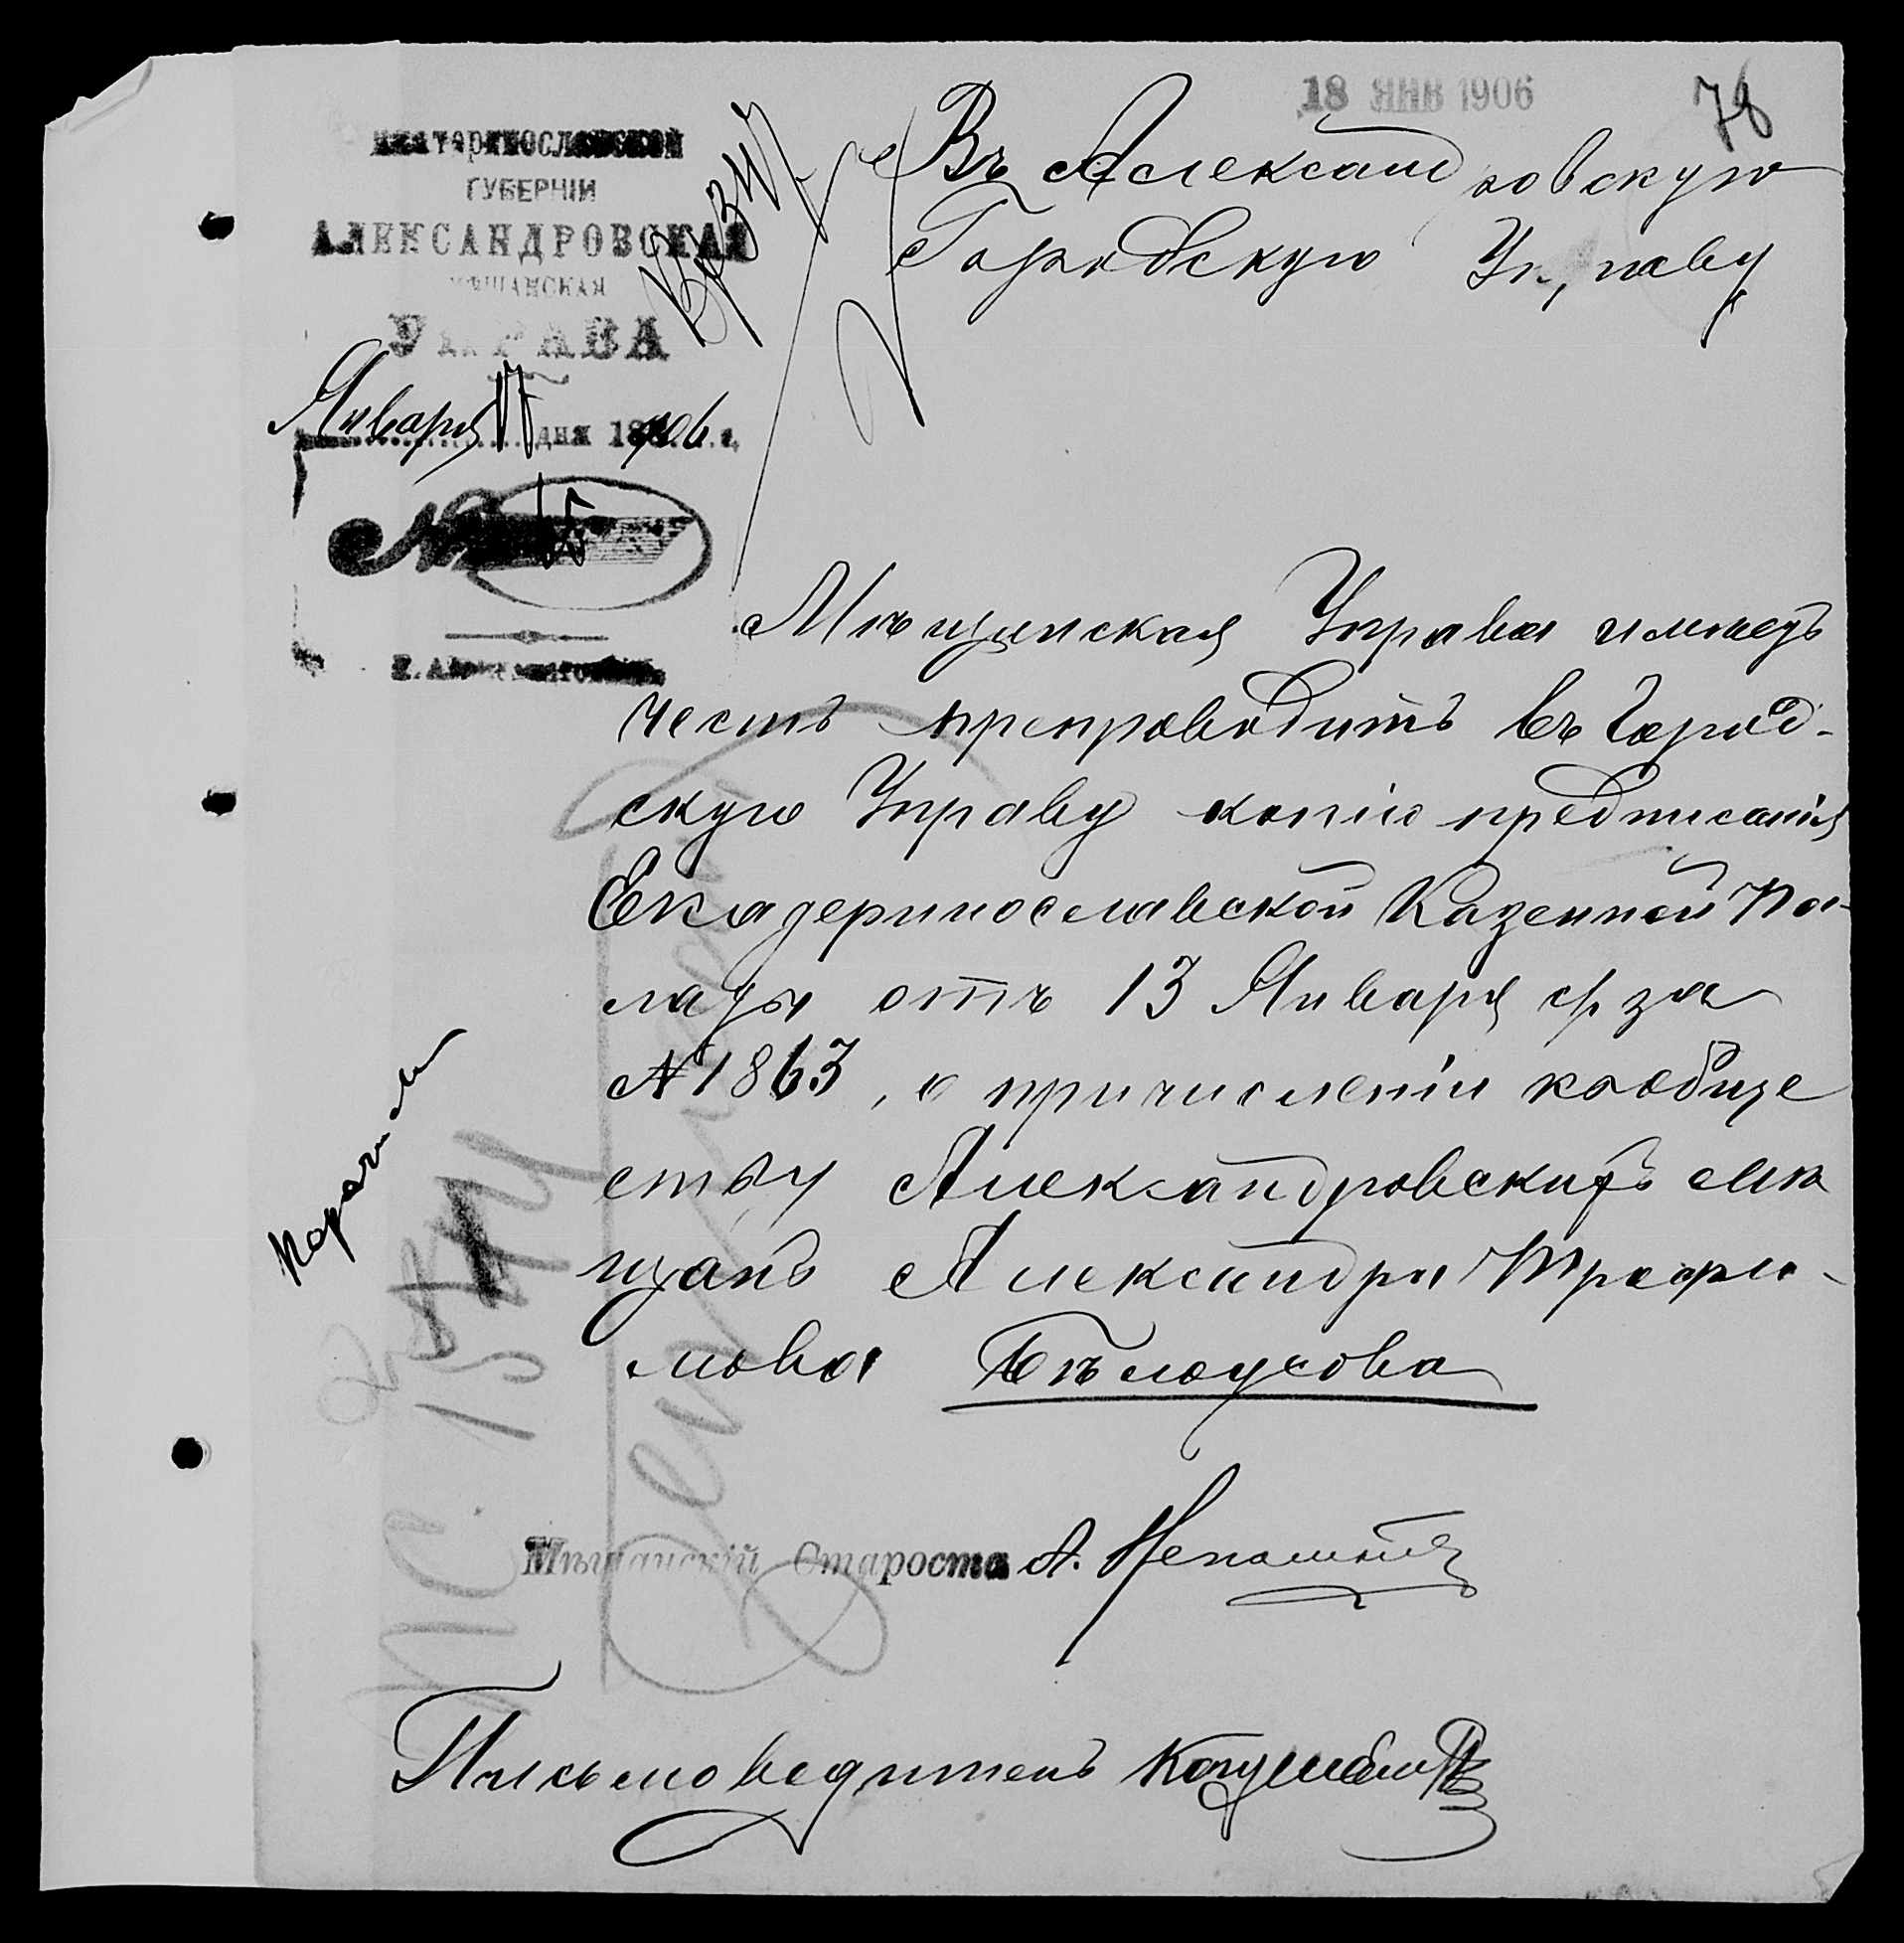 18 ЯНВ 1906
78
Екатеринославской
ГУБЕРНІИ
АЛЕКСАНДРОВСКАЯ
МѢЩАНСКАЯ
УПРАВА
Января 17 дня 1906 г.
№ 15
г. Александровскъ
Въ Александровскую
Городскую Управу
Мѣщанская Управа имѣетъ
честь препроводить въ Город-
скую Управу копію предписанія
Екатеринославской Казенной Па-
латы отъ 13 Января с/г за
№ 1863, о причисленіи къ обще
ству Александровскихъ мѣ
щанъ Александра Трофи-
мова Бѣлоусова
Мѣщанскій Староста А.
Письмоводитель